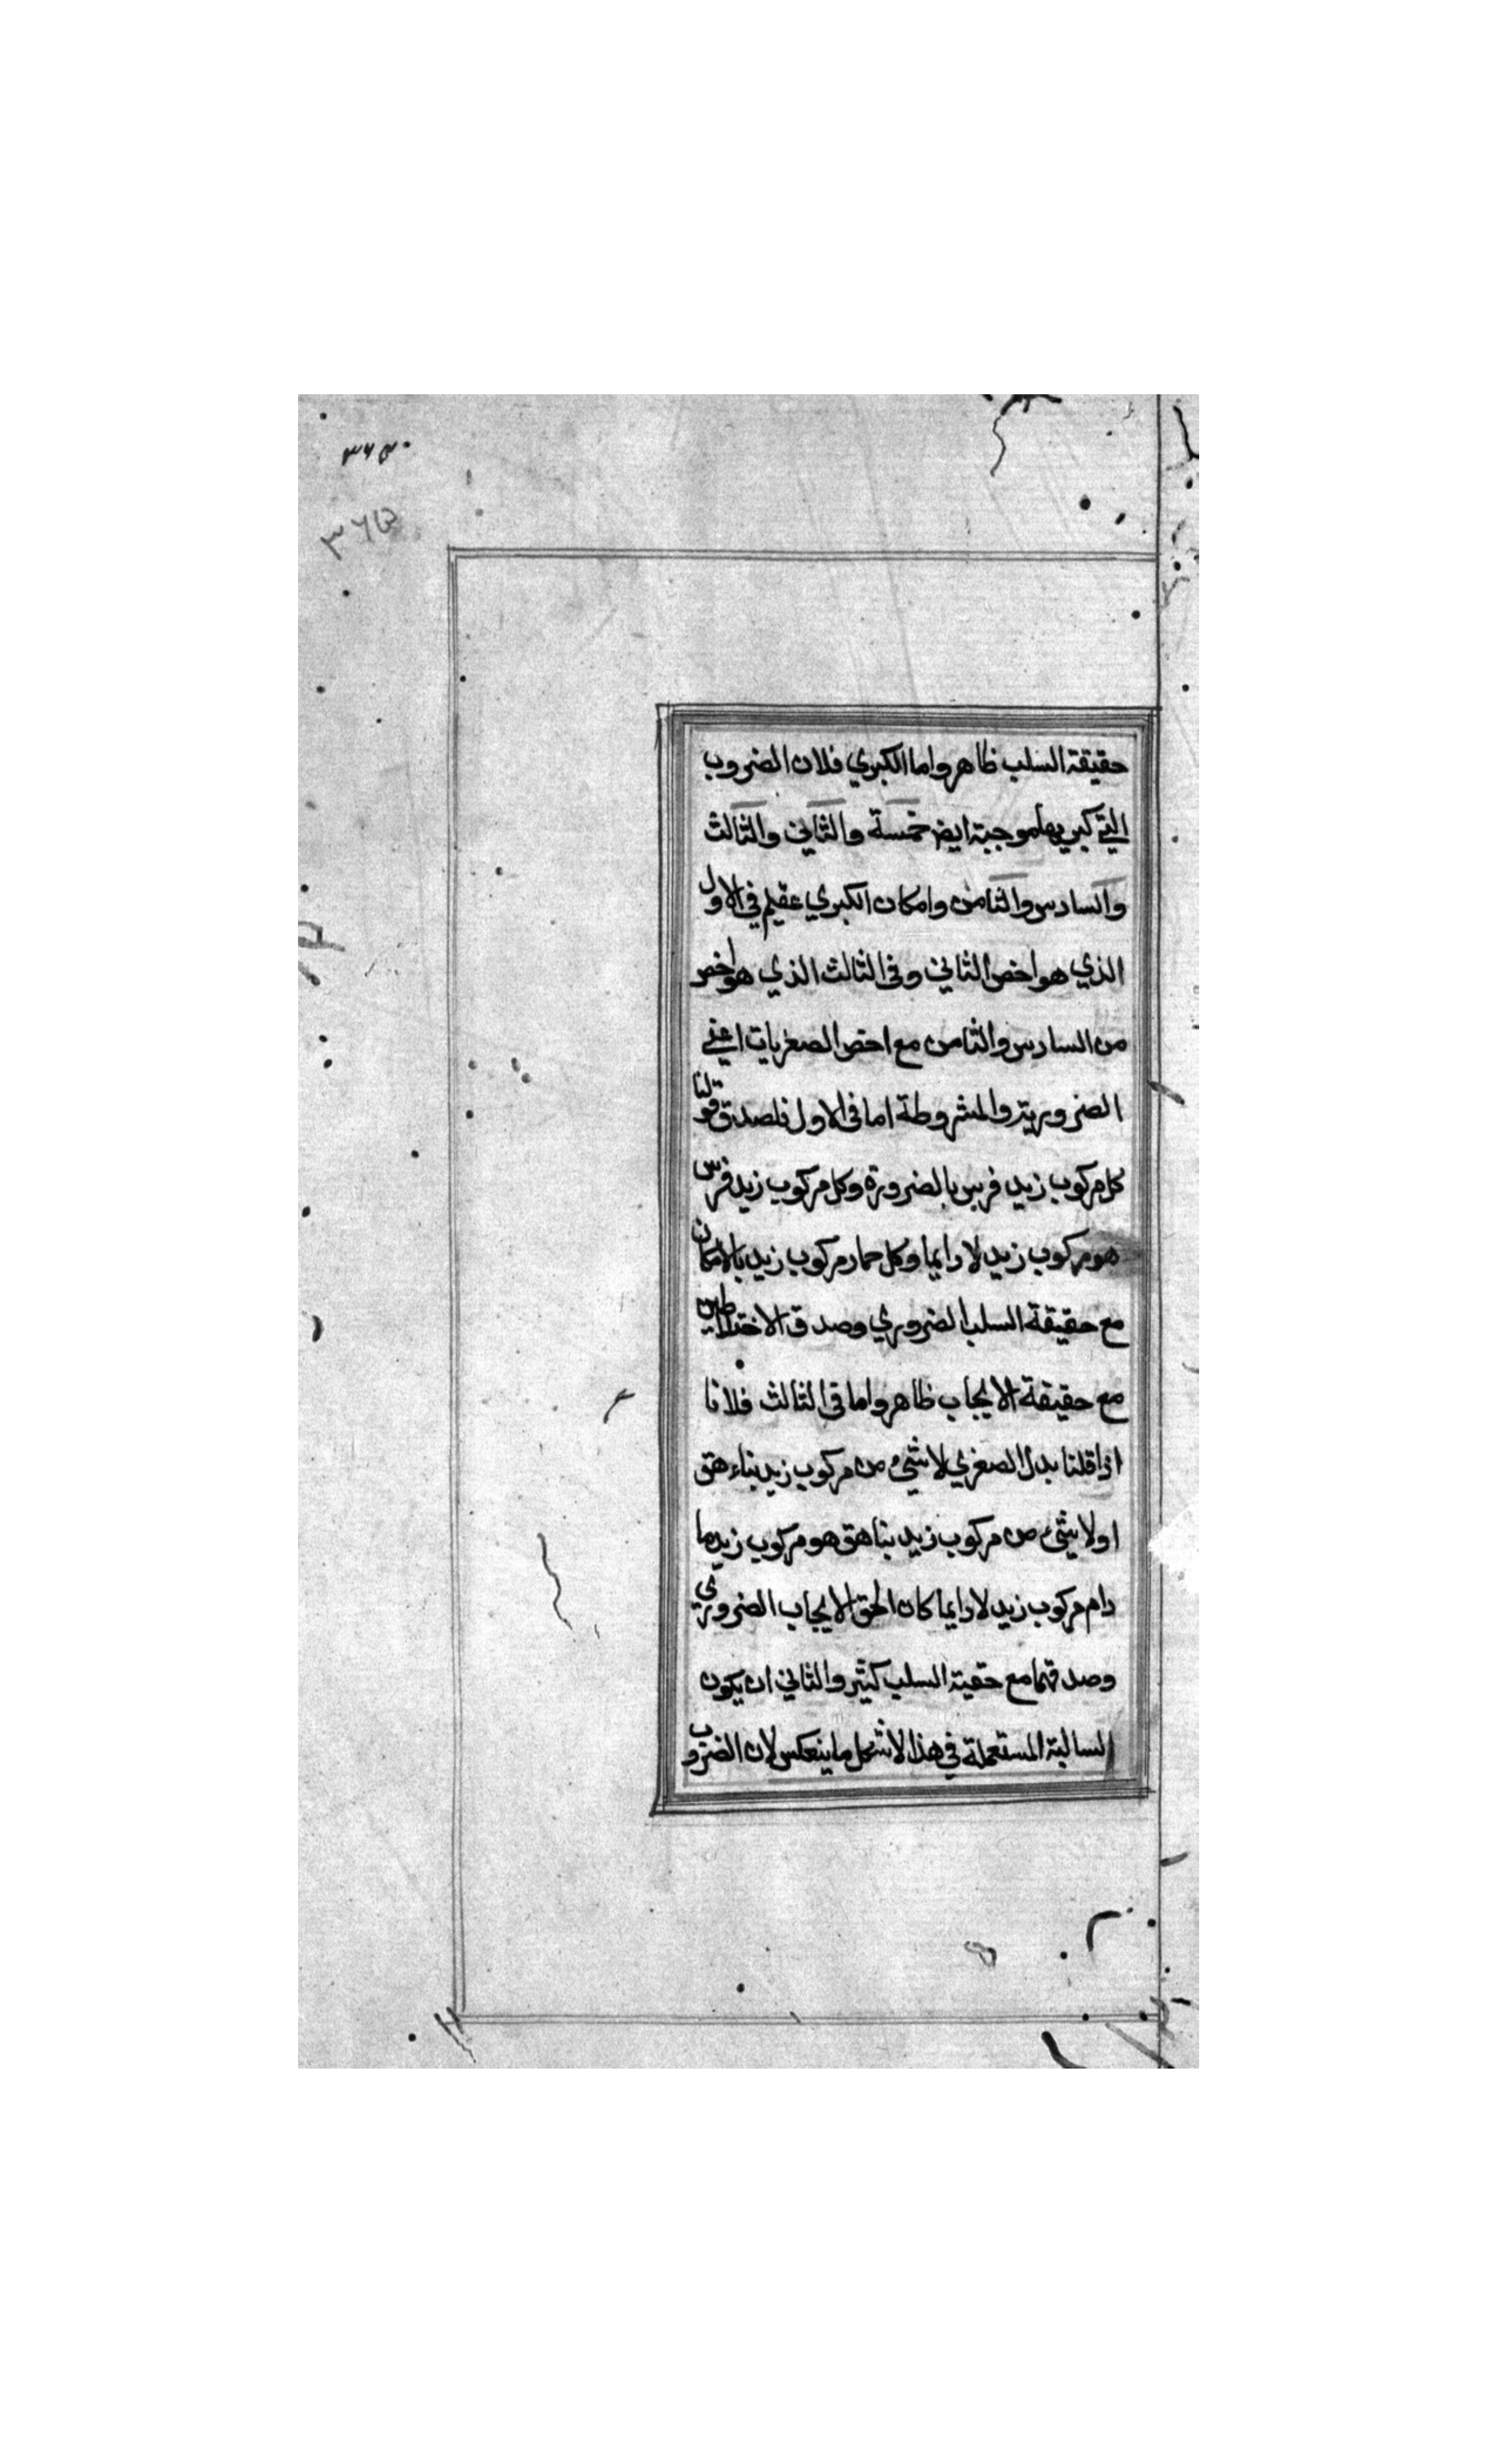 حقيقة السلب ظاهر واما الكبري فلان الضروب
التي كبريها موجبة ايضا خمسة والثاني والثالث
والسادس والثامن وامكان الكبري عقيم في الاول
الذي هو اخص الثاني وفي الثالث الذي هو اخص
من السادس والثامن مع اخص الصغريات اعني
الضرورية والمشروطة اما في الاول فلصدق قولنا
كل مركوب زيد فرس بالضرورة وكل مركوب زيد فرس
هو مركوب زيد لا دايما وكل حمار مركوب زيد بالامكان
مع حقيقة السلب الضروري وصدق الاختلاطين
مع حقيقة الايجاب ظاهر واما في الثالث فلانا
اذا قلنا بدل الصغري لا شئ من مركوب زيد بناهق
او لا شئ من مركوب زيد بناهق هو مركوب زيد ما
دام مركوب زيد لا دايما كان الحق الايجاب الضروري
وصدقهما مع حقية السلب كثير والثاني ان يكون
السالبة المستعملة في هذا الاشكل ما ينعكس لان الضروب